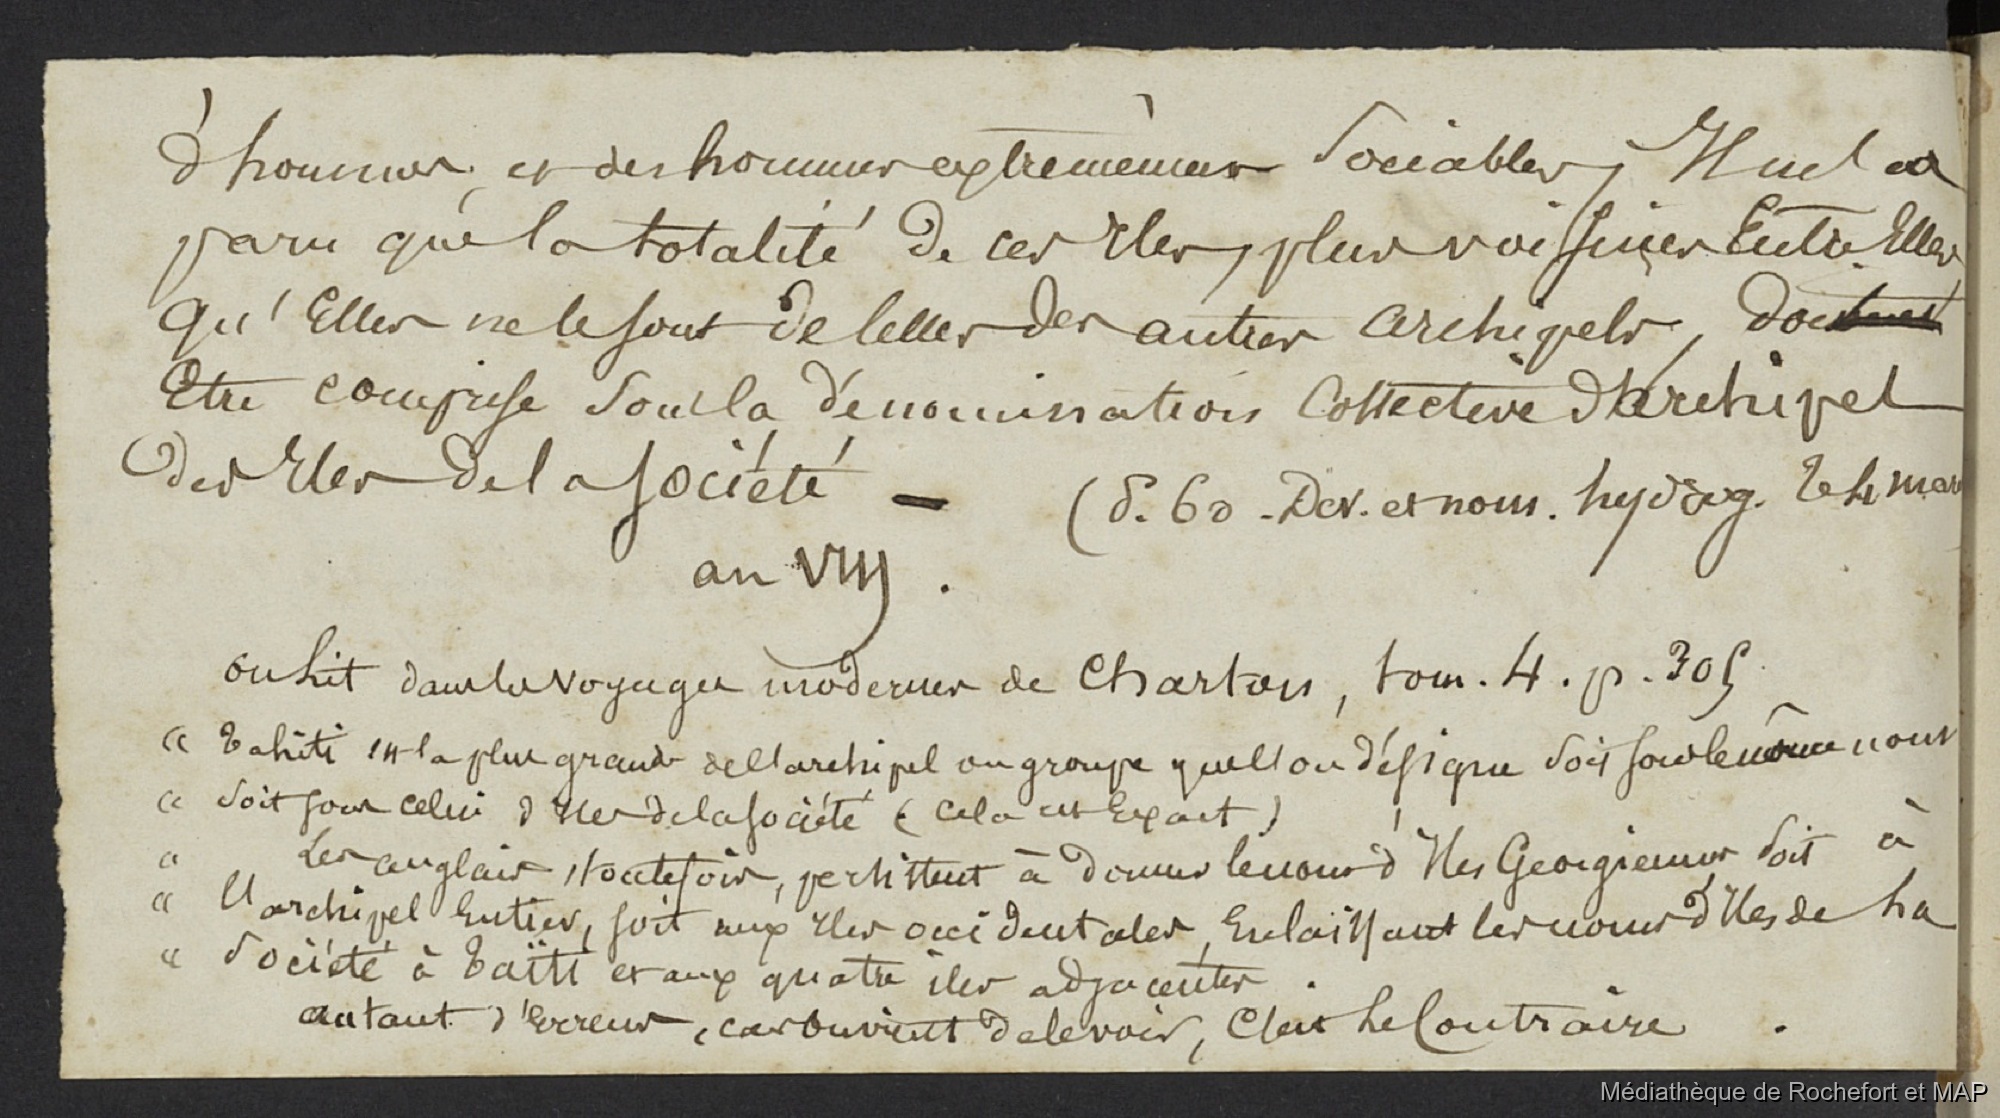 d'hommes, et des hommes extrêmement Sociables, Il m'a
paru que la totalité de ces Iles, plus voissines Entre Elles
qu'Elles ne le sont de celles des autres archipels, doi
Etre comprise Sous la dénomination Collective d'Archipel
des Iles de la Société — (p. 60. Dev. et nom. hydrog.
an VIII .
on Lit dans les voyages modernes de Charton, tom. 4. p. 305
" Tahiti est la plus grande de l'archipel ou groupe que l'on désigne Soit sous le même nom
" Soit sous celui d'Iles de la Société (cela est Exact)
" Les anglais, toutefois, persistent à donner le nom d'Iles Georgiennes Soit à
" L'archipel Entier, soit aux Iles occidentales, En laissant les noms d'Iles de La
" Société à Taïti et aux quatre îles adjacentes .
autant d'Erreurs, car on vient de le voir, C'est Le Contraire .
Médiathèque de Rochefort et MAP